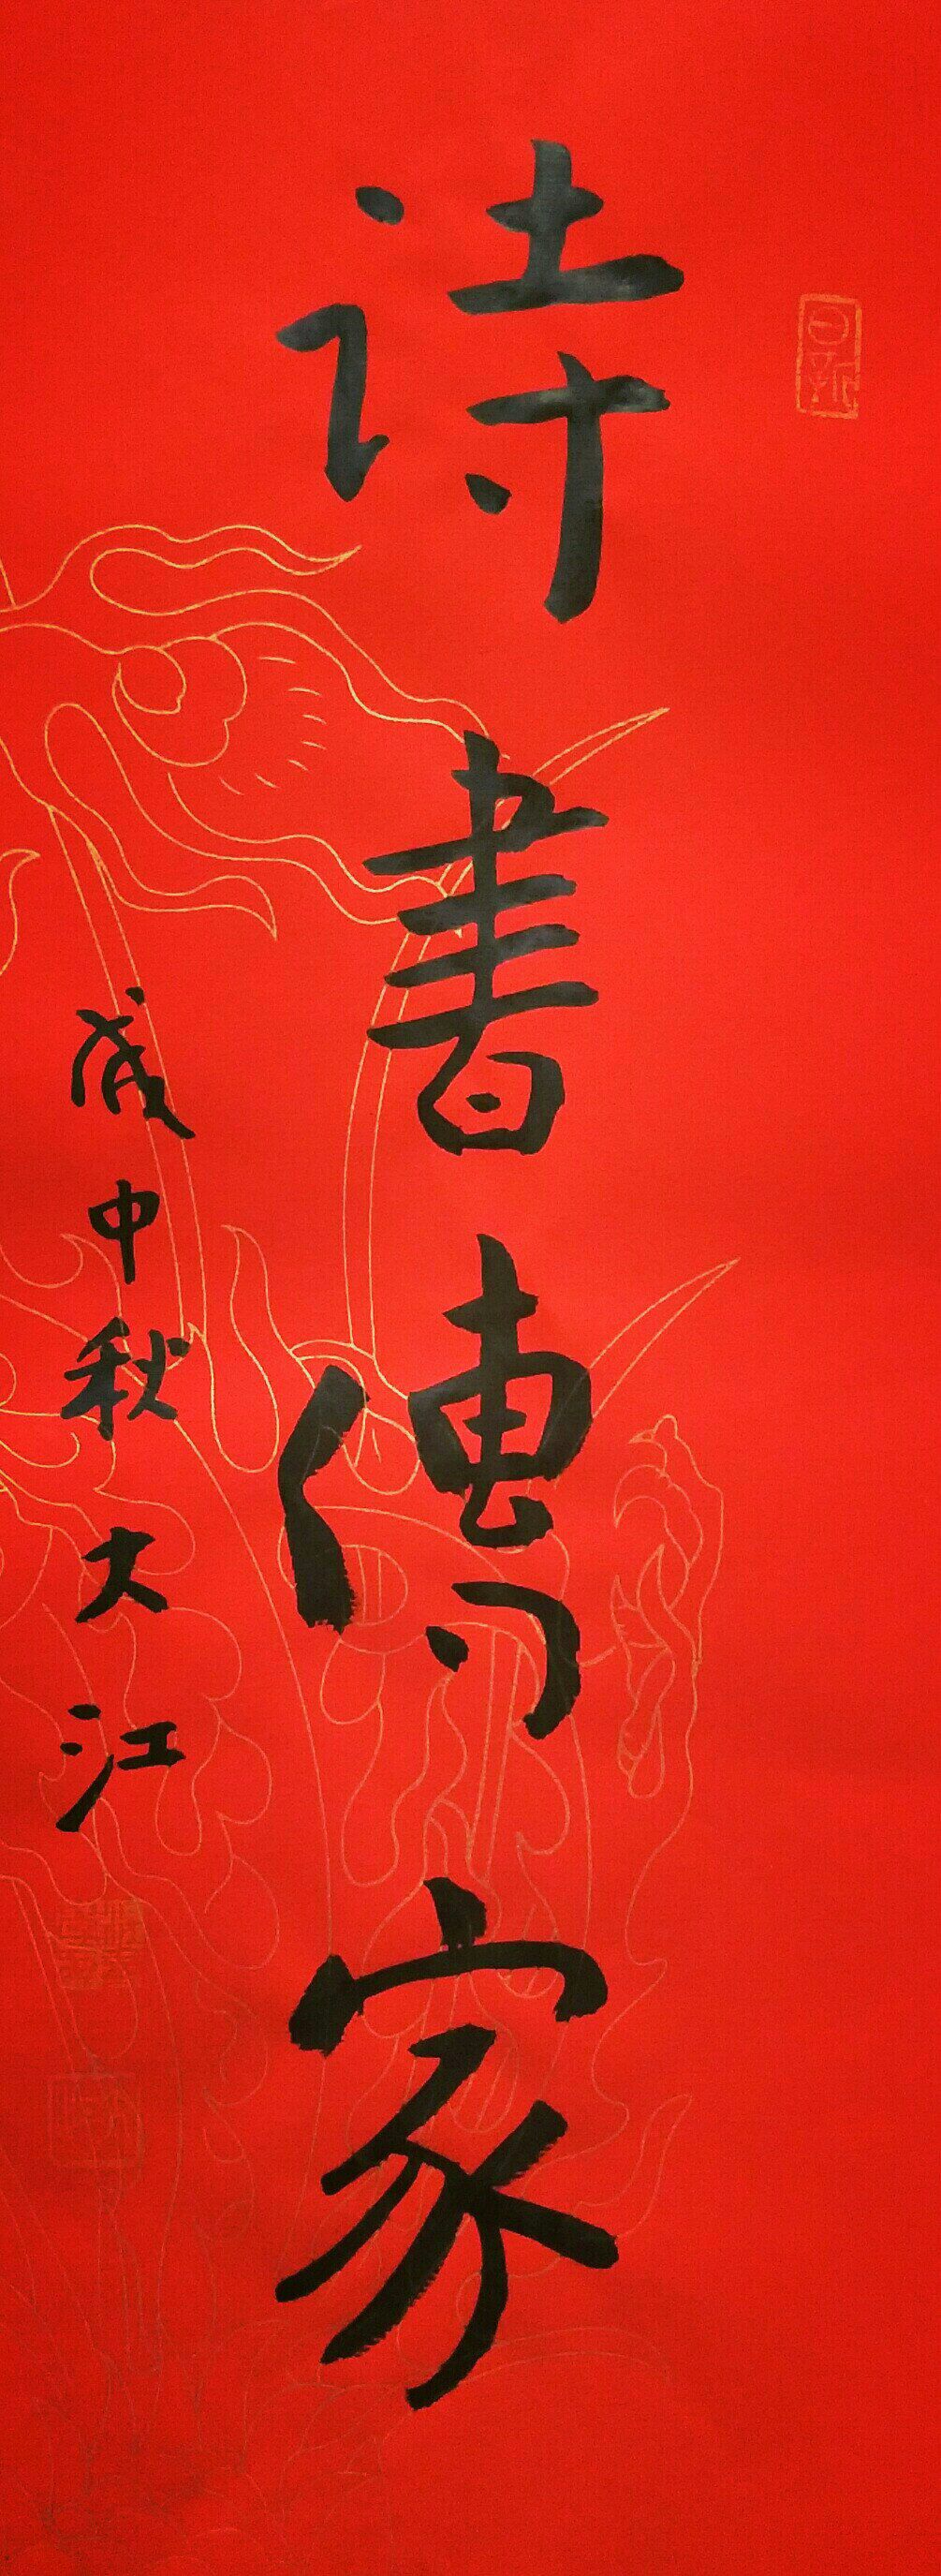 日新
诗書傳家
中秋大江